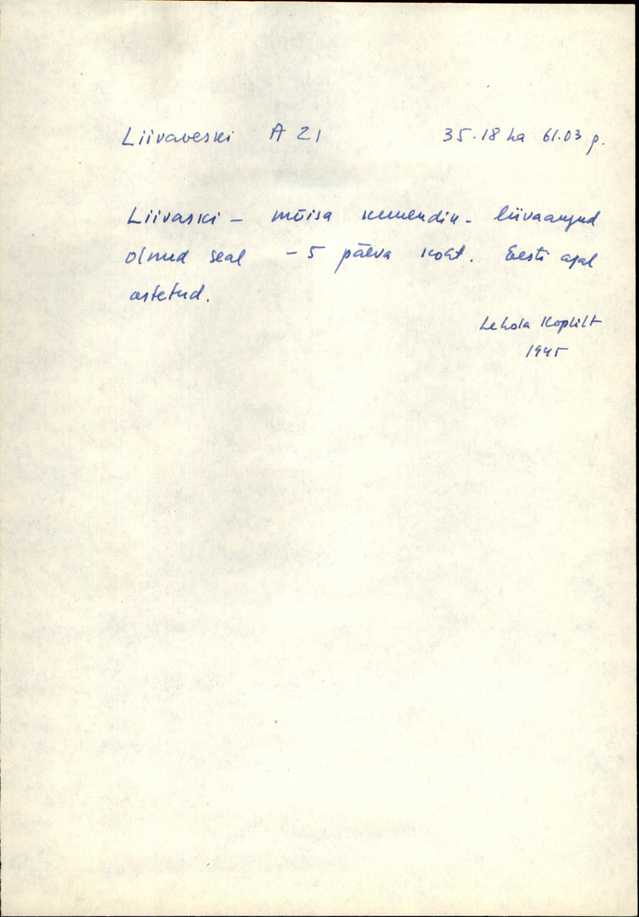 Liivaveski A 21 35.18 ha 61.03 p.
Liivaski – mõisa liivaaugud
olnud seal – 5 päeva koht. Eesti ajal
ostetud.
Lehola Koplilt
1945